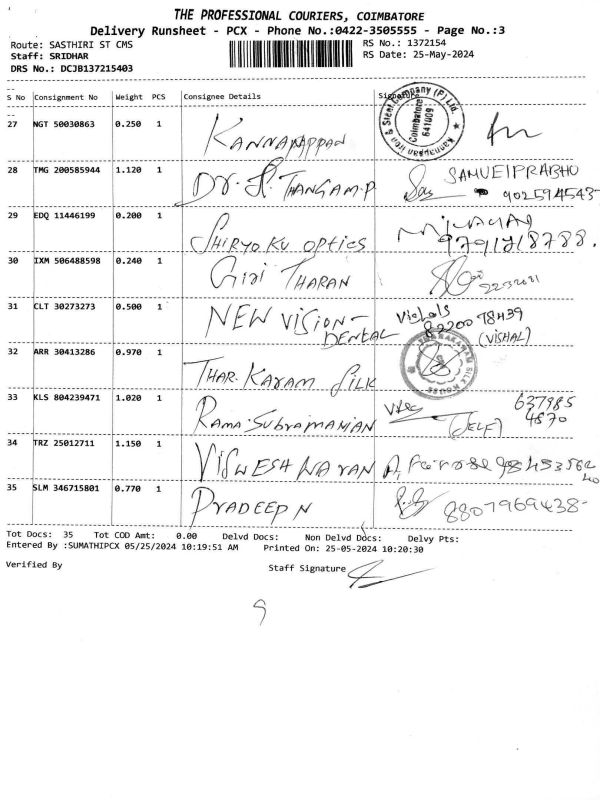 THE PROFESSIONAL COURIERS, COIMBATORE
Delivery Runsheet - PCX - Phone No.:0422-3505555 - Page No.:3
Route: SASTHIRI ST CMS RS No.: 1372154
Staff: SRIDHAR RS Date: 25-May-2024
DRS No.: DCJB137215403
S No Consignment No Weight PCS Consignee Details Signature
27 NGT 50030863 0.250 1 KANNAPAPPAN
Kannapan Iron & Steel Company (P) Ltd. Coimbatore 641009
28 TMG 200585944 1.120 1 DR. THANGAM.P SAMUELPRABHU
902594543
29 EDQ 11446199 0.200 1 SHIRYO KU OPTICS
9791718788.
30 IXM 506488598 0.240 1 GIRI THARAN
31 CLT 30273273 0.500 1 NEW VISION-
DENTAL
8220078439
(VISHAL)
32 ARR 30413286 0.970 1 THAR.KARAM SILK
33 KLS 804239471 1.020 1 RAMA.SUBRAMANIAN
637985
4870
(SELF)
34 TRZ 25012711 1.150 1 VISWESH NARAN
35 SLM 346715801 0.770 1 PRADEEP N 8807969438-
Tot Docs: 35 Tot COD Amt: 0.00 Delvd Docs: Non Delvd Docs: Delvy Pts:
Entered By :SUMATHIPCX 05/25/2024 10:19:51 AM Printed On: 25-05-2024 10:20:30
Verified By Staff Signature
9